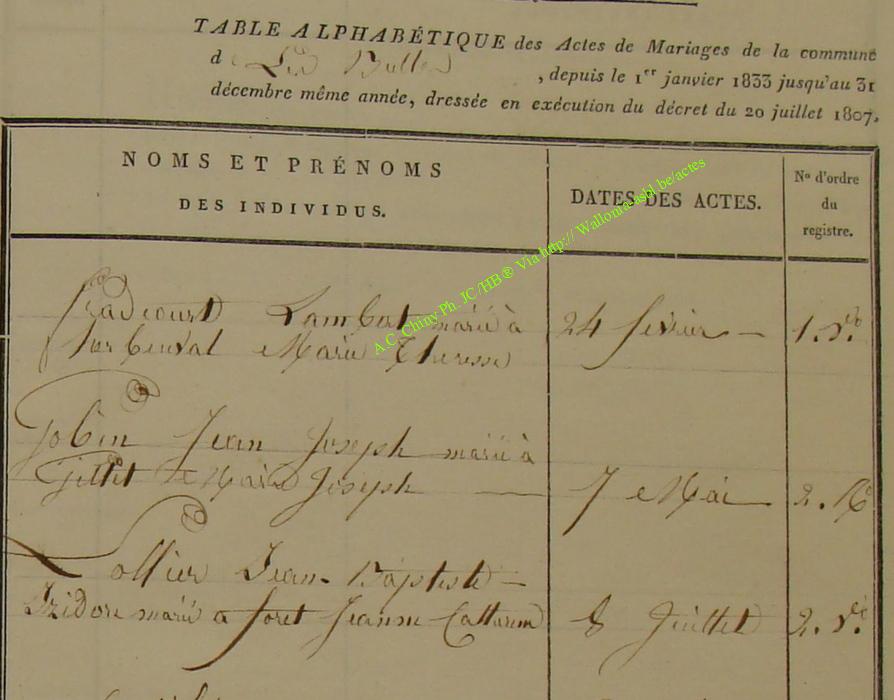 TABLE ALPHABÉTIQUE des Actes de Mariages de la commune
d Les Bulles , depuis le 1er janvier 1833 jusqu'au 31
décembre même année, dressée en exécution du décret du 20 juillet 1807.
NOMS ET PRÉNOMS
DES INDIVIDUS.
DATES DES ACTES.
No d'ordre
du
registre.
A.C. Chiny Ph. JC/HB® Via http://Wallonica.asbl.be/actes
Lambert marié à 24 fevrier 1.
Marie Theresse
Jobin Jean Joseph marié à
Gillet Marie Joseph 7 Mai 2.
Collier Jean Baptiste
Izidore marié a foret Jeanne Catterine 8 Juillet 2.